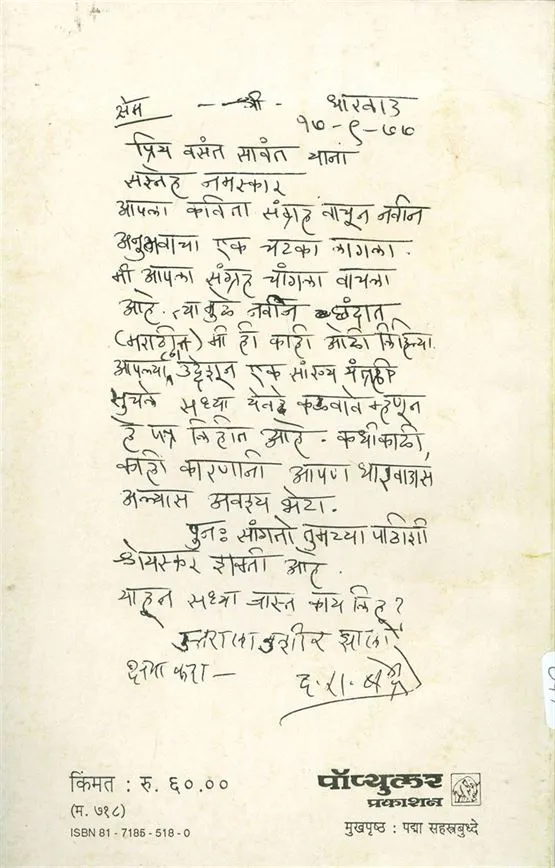 क्षेम - श्री - धारवाड
१७-९-७७
प्रिय वसंत सावंत यांना
सस्नेह नमस्कार
आपला कविता संग्रह वाचून नवीन
अनुभवाचा एक चटका लागला.
मी आपला संग्रह चांगला वाचला
आहे. त्यामुळे नवीन छंदात
(मराठीत) मी ही काही ओळी लिहिल्या.
आपल्या उद्देशून एक सांख्य
सुचले सध्या येवढे कळवावे म्हणून
हे पत्र लिहीत आहे. कधीकाळी,
काही कारणानी आपण धारवाडास
आल्यास अवश्य भेटा.
पुनः सांगतो तुमच्या पाठीशी
श्रेयस्कर शक्ती आहे.
याहून सध्या जास्त काय लिहू?
उत्तराला उशीर झाला
क्षमा करा — द. रा. बेंद्रे
किंमत : रु. ६०.००
(म. ७१८)
ISBN 81 - 7185 - 518 - 0
पॉप्युलर
प्रकाशन
मुखपृष्ठ : पद्मा सहस्रबुद्धे